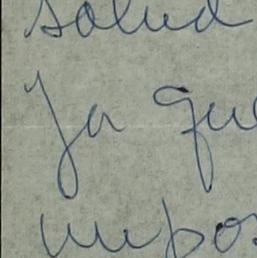 salud
ya que
impos